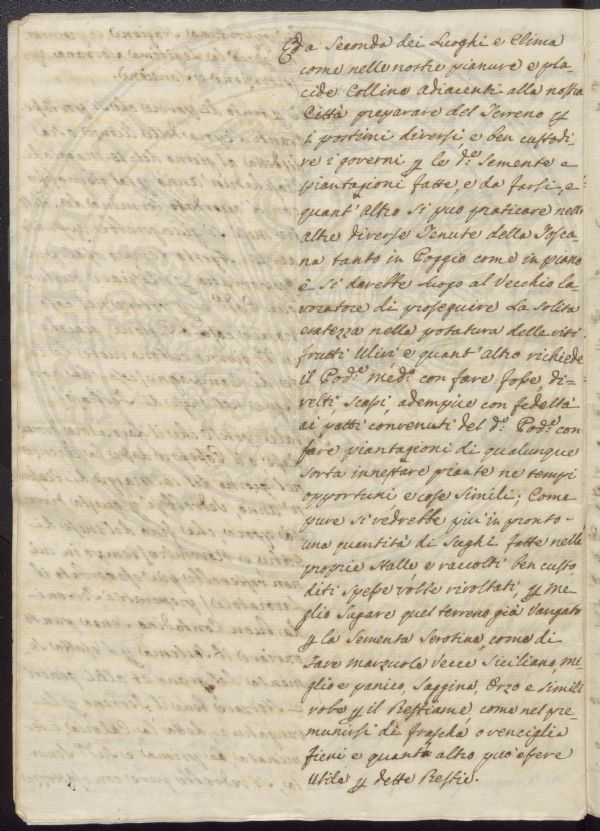 Ed a Seconda dei Luoghi e Clima
come nelle nostre pianure e pla-
cide Colline adiacenti alla nostra
Città preparare del Terreno p
i portimi diversi, e ben custodi
re i governi p le d.e Semente e
piantagioni fatte, e da farsi, e
quant'altro si può praticare nelle
altre diverse Tenute della Tosca-
na tanto in Poggio come in piano
e si darebbe luogo al Vecchio la-
voratore di proseguire la solita
esatezza nella potatura delle viti
frutti Ulivi e quant'altro richiede
il Pod.e med.o con fare fosse di-
velti, scassi, adempire con fedeltà
ai patti convenuti del d.o Pod.e con
fare piantagioni di qualunque
sorta innestare piante ne tempi
opportuni e cose simili; Come
pure si vedrebbe più in pronto
una quantità di Sughi fatte nelle
proprie Stalle e raccolti ben custo
diti spesse volte rivoltati p me
glio Sugare quel terreno già Vangato
p la Sementa Serotina, come di
fare marzuolo Vecce Siciliano, mi
glio e panico, Saggina, Orzo e simili
robe p il Bestiame, come nel pre-
munirsi di frascha o venciglia
fieni e quanto altro può esere
Utile p dette Bestie.